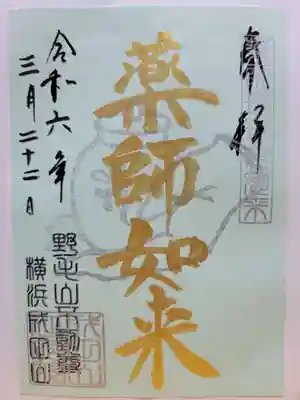 奉拝
薬師如来
令和六年
三月二十二日
野毛山不動尊
横浜成田山